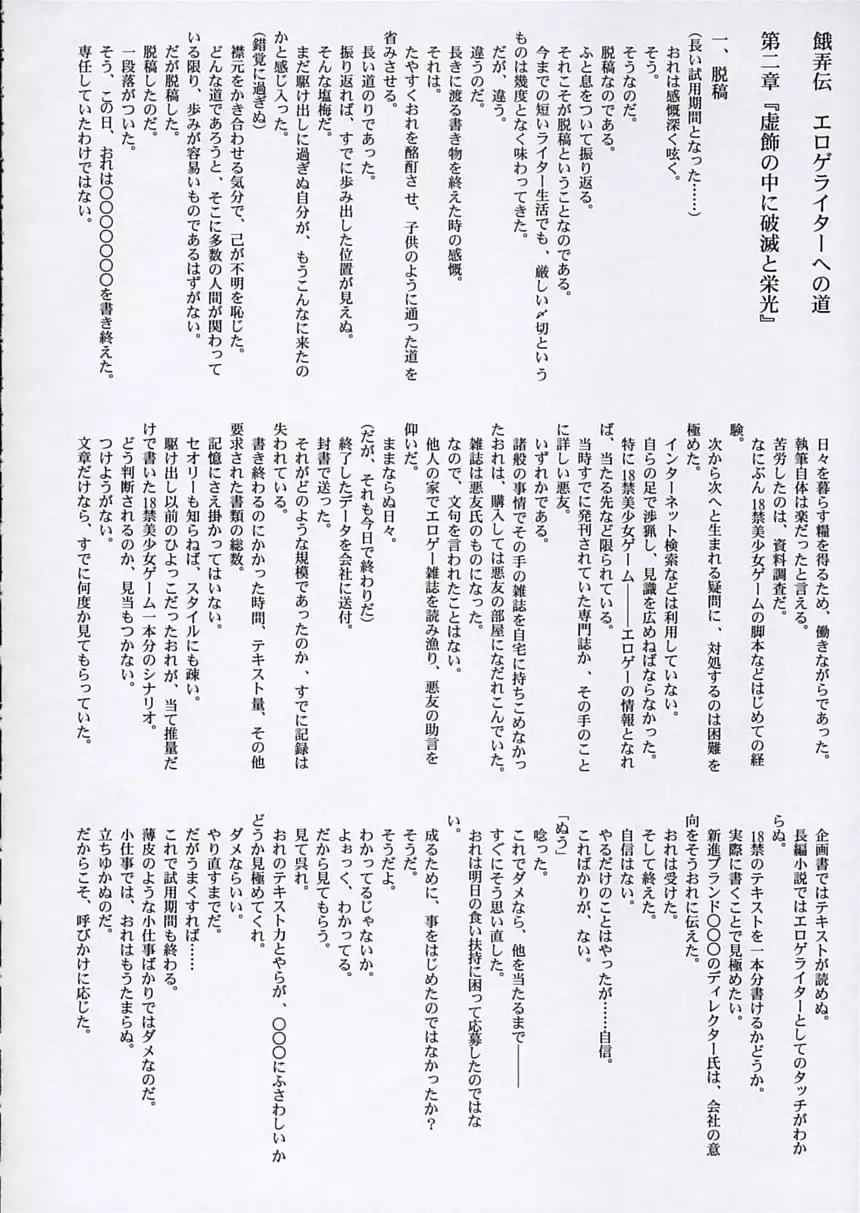 餓弄伝　エロゲライターへの道
第二章『虚飾の中に破滅と栄光』
一、脱稿
（長い試用期間となった……）
おれは感慨深く呟く。
そう。
そうなのだ。
脱稿なのである。
ふと息をついて振り返る。
それこそが脱稿ということなのである。
今までの短いライター生活でも、厳しい〆切という
ものは幾度となく味わってきた。
だが、違う。
違うのだ。
長きに渡る書き物を終えた時の感慨。
それは。
たやすくおれを酩酊させ、子供のように通った道を
省みさせる。
長い道のりであった。
振り返れば、すでに歩み出した位置が見えぬ。
そんな塩梅だ。
まだ駆け出しに過ぎぬ自分が、もうこんなに来たの
かと感じ入った。
（錯覚に過ぎぬ）
襟元をかき合わせる気分で、己が不明を恥じた。
どんな道であろうと、そこに多数の人間が関わって
いる限り、歩みが容易いものであるはずがない。
だが脱稿した。
脱稿したのだ。
一段落がついた。
そう、この日、おれは○○○○○○○を書き終えた。
専任していたわけではない。
日々を暮らす糧を得るため、働きながらであった。
執筆自体は楽だったと言える。
苦労したのは、資料調査だ。
なにぶん18禁美少女ゲームの脚本などはじめての経
験。
次から次へと生まれる疑問に、対処するのは困難を
極めた。
インターネット検索などは利用していない。
自らの足で渉猟し、見識を広めねばならなかった。
特に18禁美少女ゲーム――エロゲーの情報となれ
ば、当たる先など限られている。
当時すでに発刊されていた専門誌か、その手のこと
に詳しい悪友。
いずれかである。
諸般の事情でその手の雑誌を自宅に持ちこめなかっ
たおれは、購入しては悪友の部屋になだれこんでいた。
雑誌は悪友氏のものになった。
なので、文句を言われたことはない。
他人の家でエロゲー雑誌を読み漁り、悪友の助言を
仰いだ。
ままならぬ日々。
（だが、それも今日で終わりだ）
終了したデータを会社に送付。
封書で送った。
それがどのような規模であったのか、すでに記録は
失われている。
書き終わるのにかかった時間、テキスト量、その他
要求された書類の総数。
記憶にさえ掛かってはいない。
セオリーも知らねば、スタイルにも疎い。
駆け出し以前のひよっこだったおれが、当て推量だ
けで書いた18禁美少女ゲーム一本分のシナリオ。
どう判断されるのか、見当もつかない。
つけようがない。
文章だけなら、すでに何度か見てもらっていた。
企画書ではテキストが読めぬ。
長編小説ではエロゲライターとしてのタッチがわか
らぬ。
18禁のテキストを一本分書けるかどうか。
実際に書くことで見極めたい。
新進ブランド○○○のディレクター氏は、会社の意
向をそうおれに伝えた。
おれは受けた。
そして終えた。
自信はない。
やるだけのことはやったが……自信。
こればかりが、ない。
「ぬう」
唸った。
これでダメなら、他を当たるまで――
すぐにそう思い直した。
おれは明日の食い扶持に困って応募したのではな
い。
成るために、事をはじめたのではなかったか？
そうだ。
そうだよ。
わかってるじゃないか。
よぉっく、わかってる。
だから見てもらう。
見て呉れ。
おれのテキスト力とやらが、○○○にふさわしいか
どうか見極めてくれ。
ダメならいい。
やり直すまでだ。
だがうまくすれば……
これで試用期間も終わる。
薄皮のような小仕事ばかりではダメなのだ。
小仕事では、おれはもうたまらぬ。
立ちゆかぬのだ。
だからこそ、呼びかけに応じた。